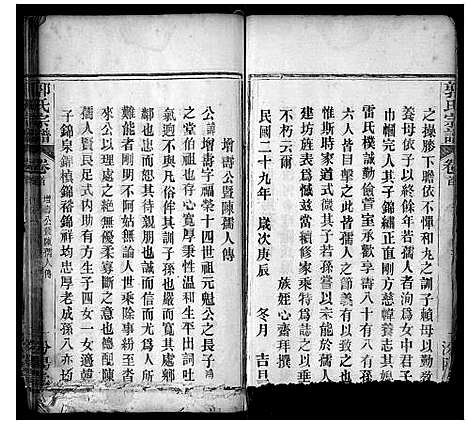 之操膝下膽依不憚和九之訓子賴母以勤
養母依子以終餘年若孺人者洵爲女中君子
巾幗完人其子錦繡正直剛方慈幃養志其媳
雷氏樸誠勤儉萱室承歡享壽八十有八有
惟斯時家道式微其子若孫嘗以未能於孺人
六人皆目擊之此皆孺人之節義有以
建坊旌表爲憾茲當續修家乘特爲誌之
不朽云爾
族姪心齋拜撰
民國二十九年 歲次庚辰 冬月 吉旦
郭氏宗譜
卷首
增壽公暨陳孺人傳
公諱增壽字福榮十四世祖元魁公之長子
之堂伯也存心寬厚秉性溫和生平出詞吐
氣迥不與凡俗侔其訓子孫也嚴而寬其處鄉
鄰也忠而厚其於親朋也誠而信其行
難能者剛明不阿姑無論人世乘除事紛至
來公處之綽然無優柔寡斷之意也德配陳
孺人賢良足式內助有方生子四女一女適韓
子錦泉錦楨錦裕錦祥均忠厚老成孫八亦
郭氏宗譜
卷首
增壽公暨陳孺人傳